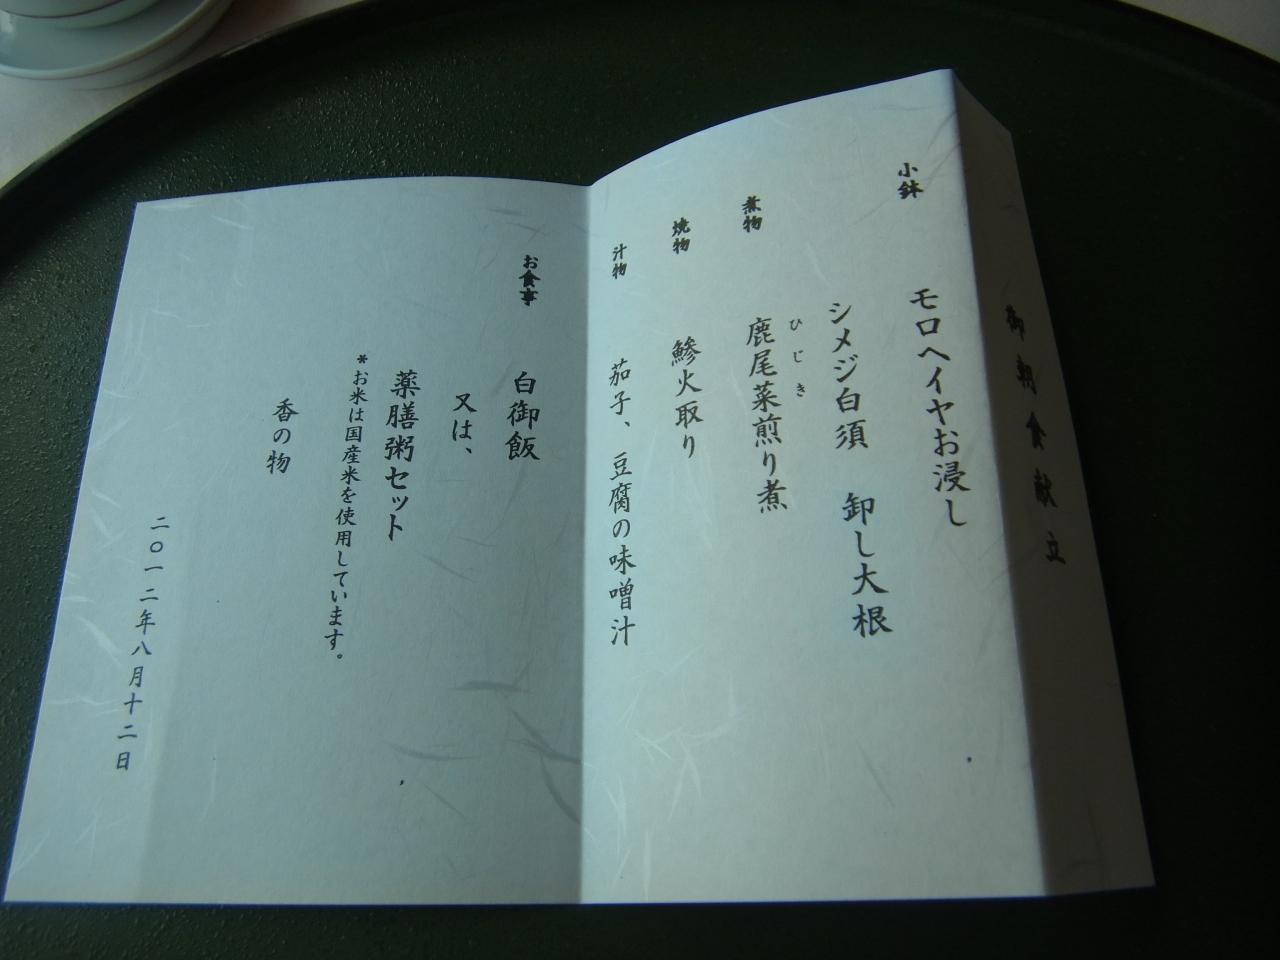 御朝食献立
小鉢　モロヘイヤお浸し
シメジ白須　卸し大根
ひじき
煮物　鹿尾菜煎り煮
焼物　鰺火取り
汁物　茄子、豆腐の味噌汁
お食事　白御飯
又は、
薬膳粥セット
*お米は国産米を使用しています。
香の物
二〇一二年八月十二日